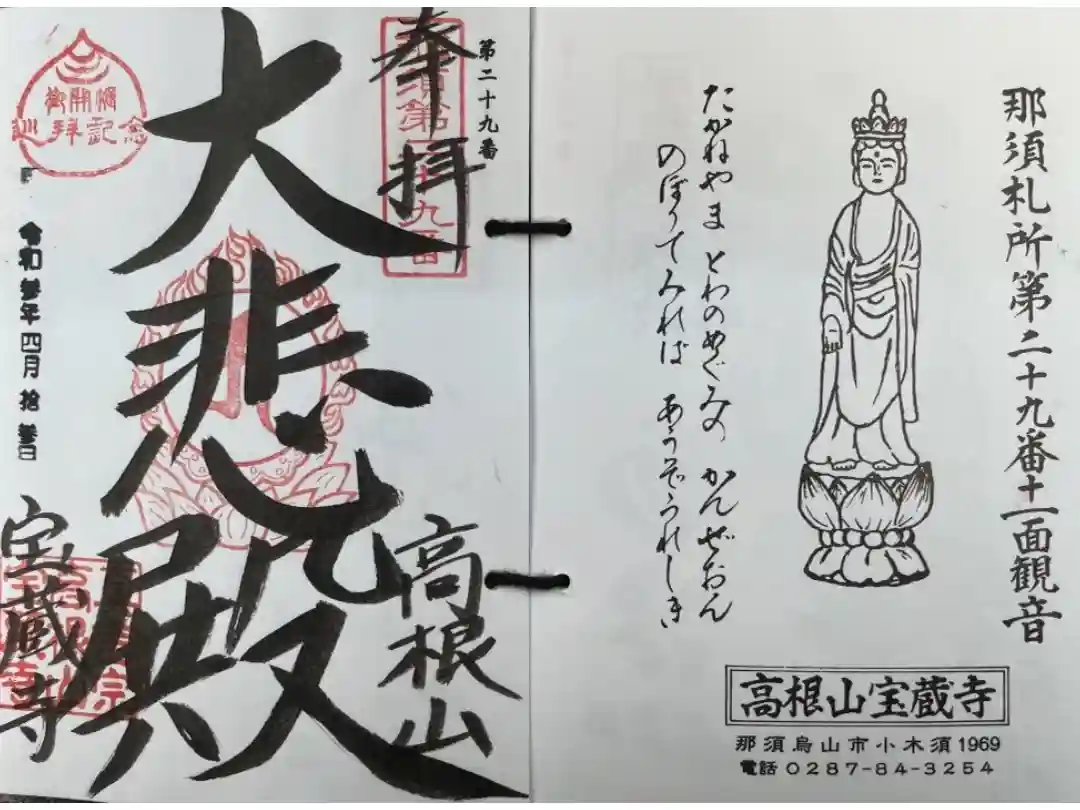 那須札所第二十九番十一面観音
たかねやま とわのめぐみの かんぜおん
のぼりてみれば あうぞうれしき
高根山宝蔵寺
那須烏山市小木須1969
電話 0287-84-3254
第二十九番
奉拝
那須第二十九番
大悲殿
高根山
御開帳
巡拝記念
令和参年四月拾参日
宝蔵寺